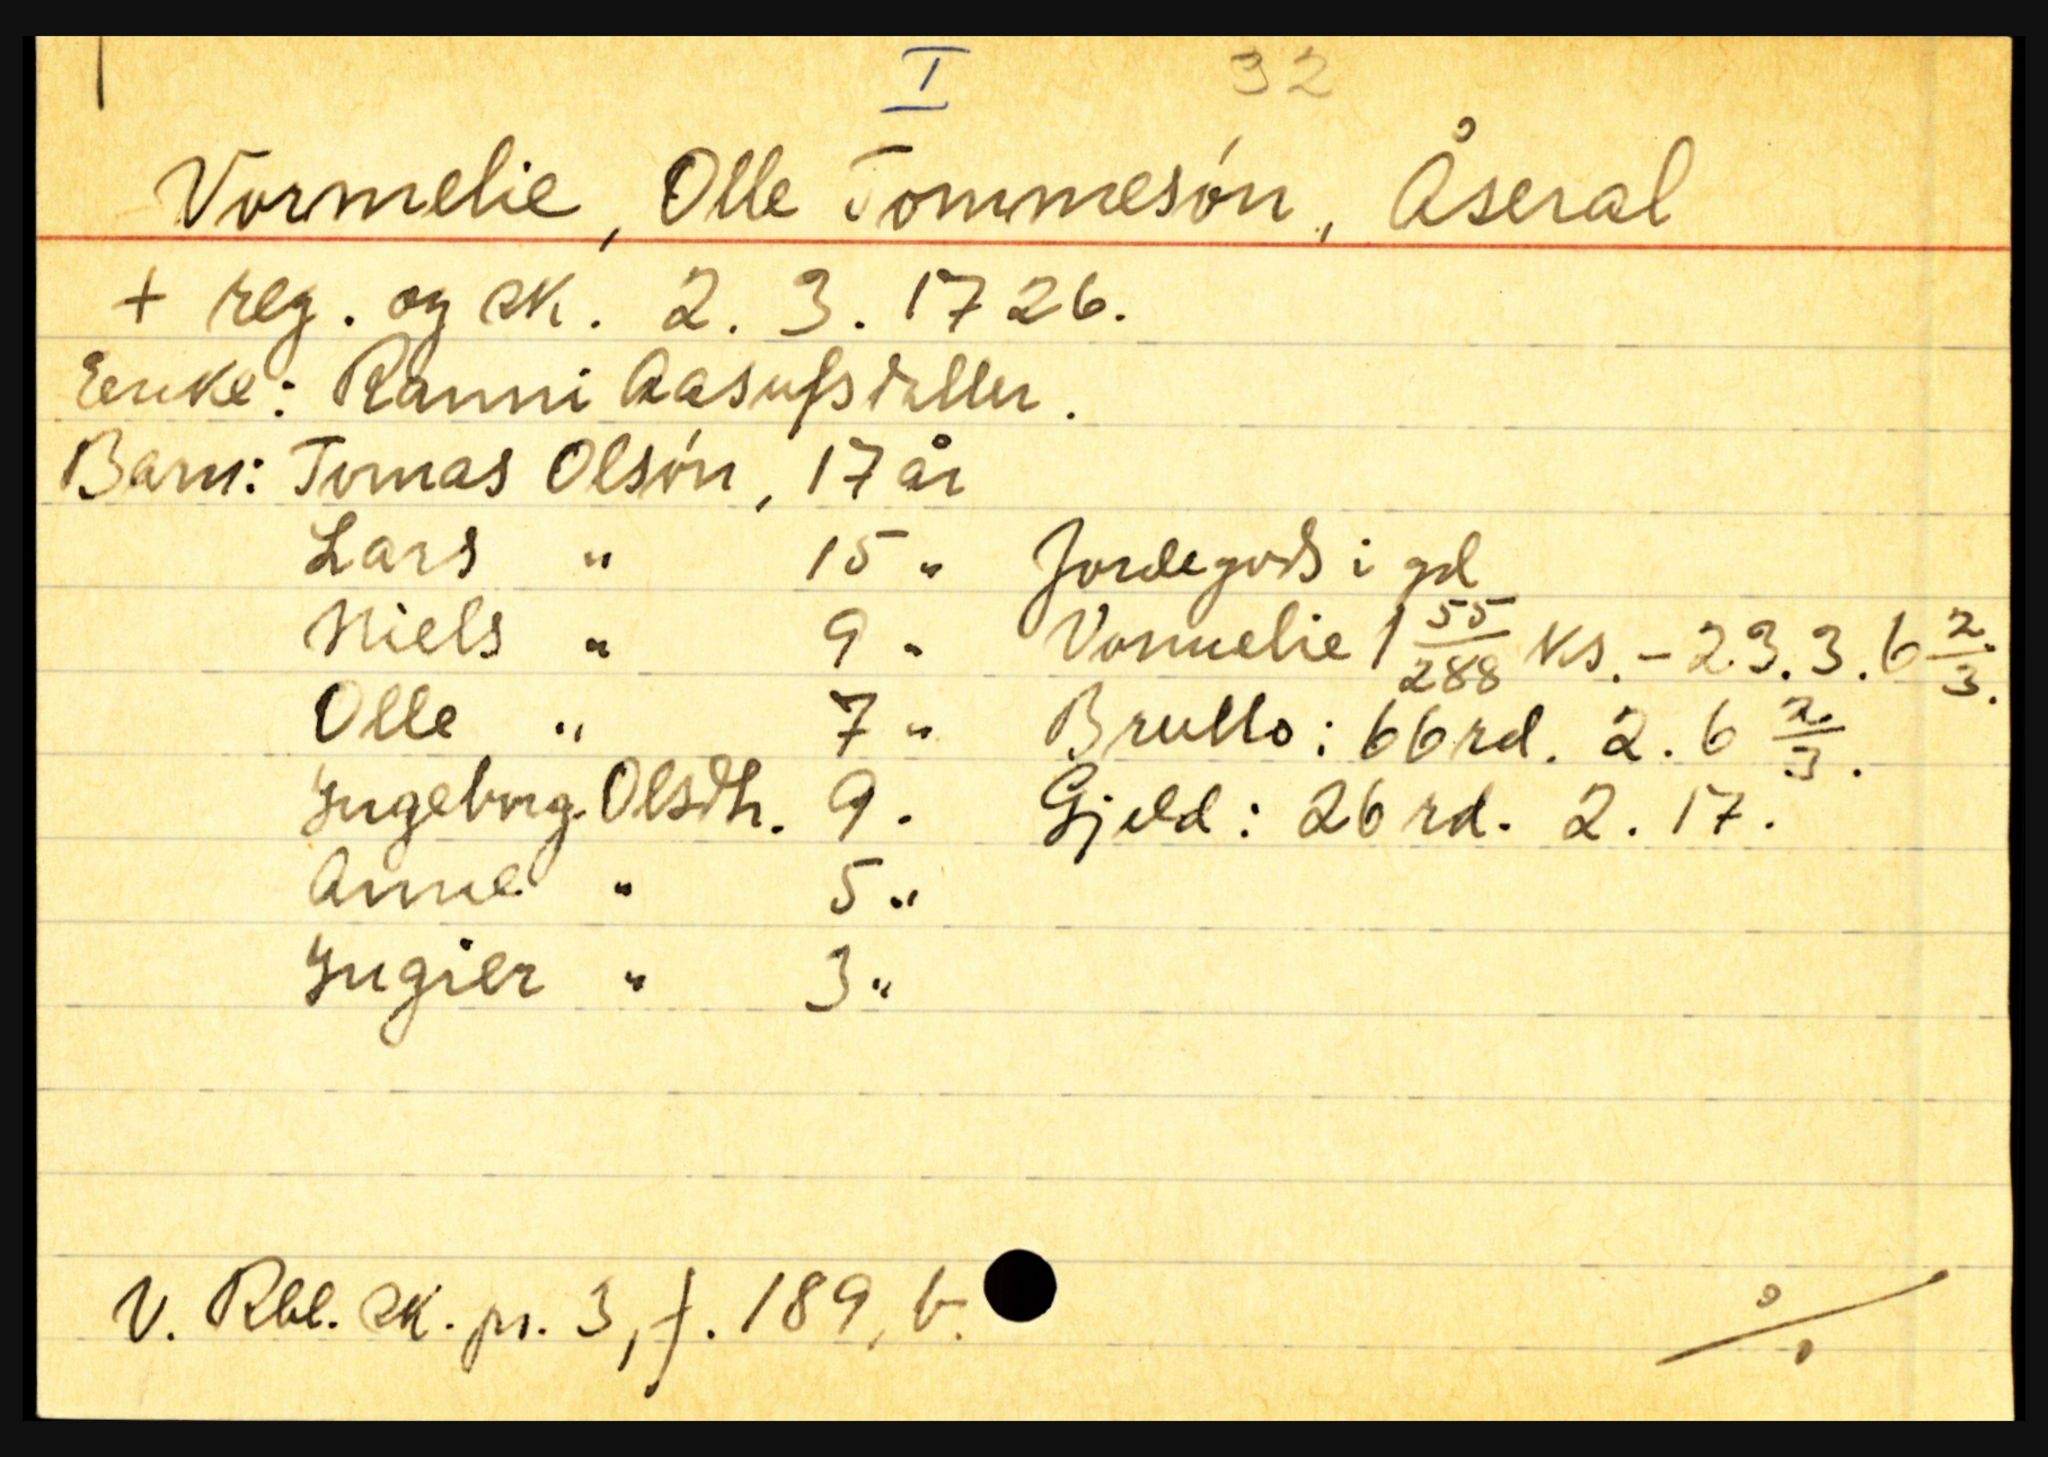 I 32
Vormelie, Olle Tommesón, Åseral
+ reg. og sk. 2. 3. 1726.
Encke: Ranni Aasufsdatter.
Barn: Tomas Olsón, 17 år
Lars " 15 " Jordegods i gd
Niels " 9 " Vormelie 1 55/288 ks. - 23. 3. 6 2/3.
Olle " 7 " Brutto: 66 rd. 2. 6 2/3.
Ingeborg Olsdtr. 9. Gjeld: 26 rd. 2. 17.
Anne " 5 "
Ingier " 3 "
V. Rbl. sk. pr. 3, f. 189, b.
%